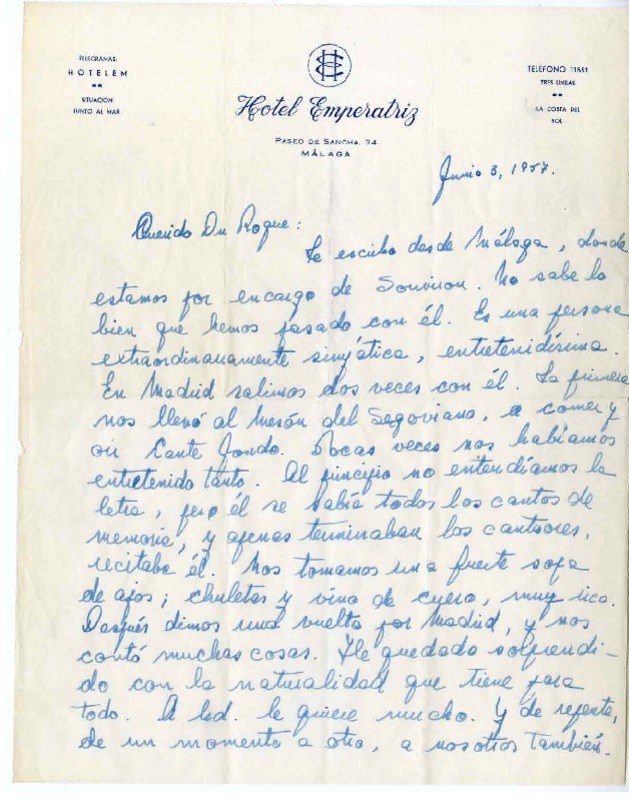 TELEGRAMAS:
HOTELEM
SITUACION
JUNTO AL MAR
Hotel Emperatriz
PASEO DE SANCHA, 34
MÁLAGA
TELÉFONO 11551
TRES LINEAS
LA COSTA DEL
SOL
Junio 3, 1957.
Querido Dn Roque:
Le escribo desde Málaga, donde
estamos por encargo de Souviron. No sabe lo
bien que hemos pasado con él. Es una persona
extraordinariamente simpática, entretenidísima.
En Madrid salimos dos veces con él. La primera
nos llevó al Mesón del Segoviano, a comer y
oir Cante Jondo. Pocas veces nos habíamos
entretenido tanto. Al principio no entendíamos la
letra, pero él se sabía todos los cantos de
memoria, y apenas terminaban los cantaores,
recitaba él. Nos tomamos una fuerte sopa
de ajos; chuletas y vino de cuero, muy rico.
Después dimos una vuelta por Madrid, y nos
contó muchas cosas. He quedado sorprendi-
do con la naturalidad que tiene para
todo. A Ud. le quiere mucho. Y de repente,
de un momento a otro, a nosotros también.